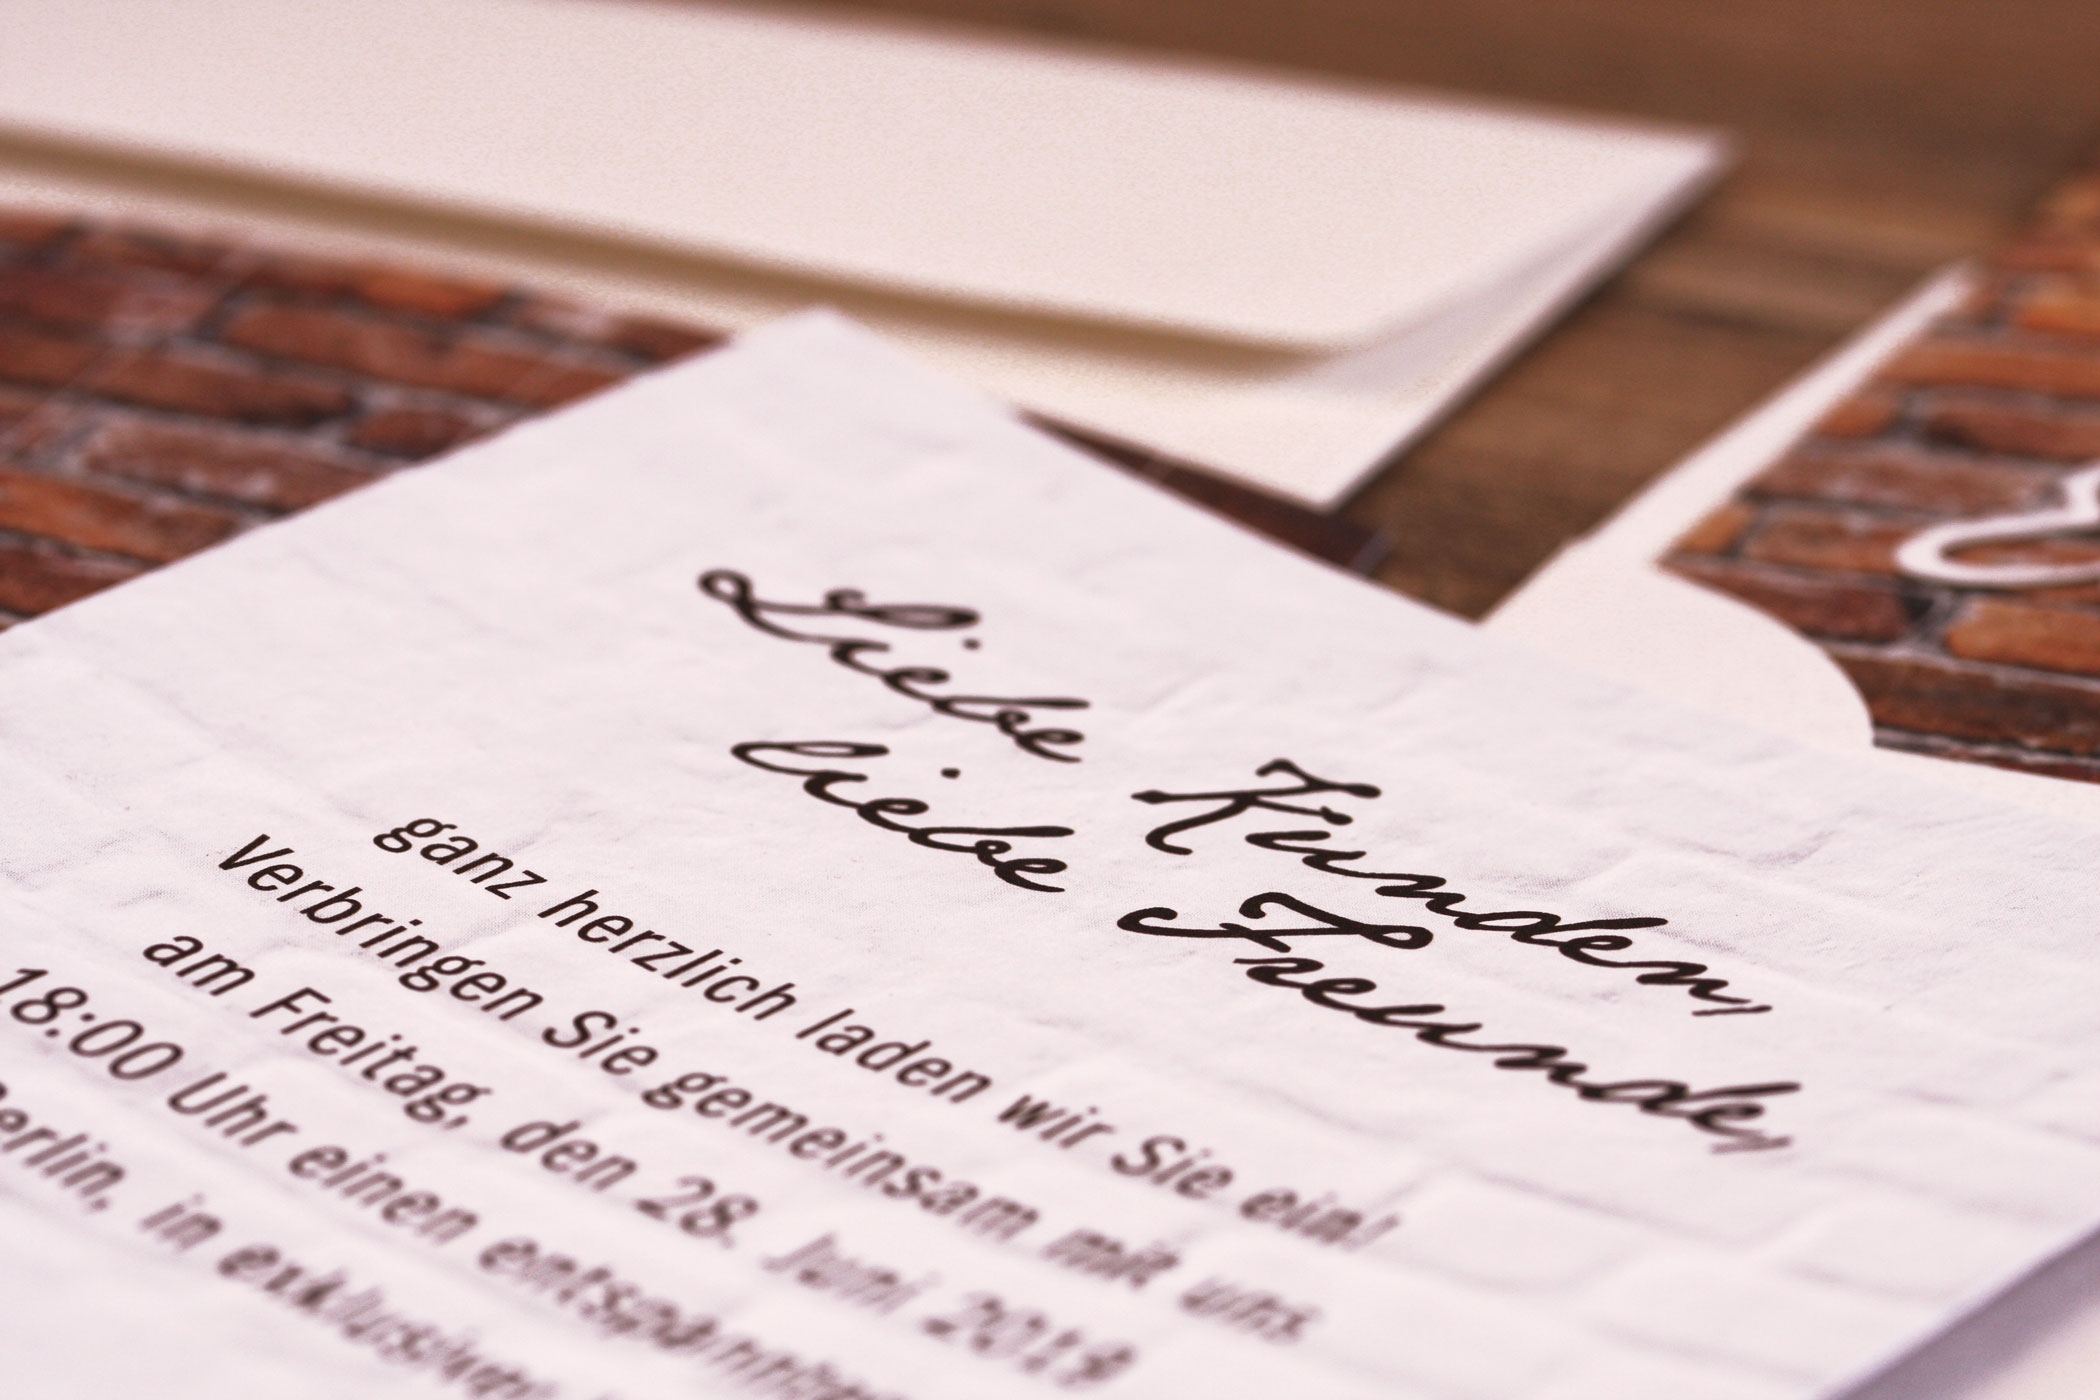 Liebe Kunden,
liebe Freunde,
ganz herzlich laden wir Sie ein!
Verbringen Sie gemeinsam mit uns
am Freitag, den 28. Juni 2019
18:00 Uhr einen
in